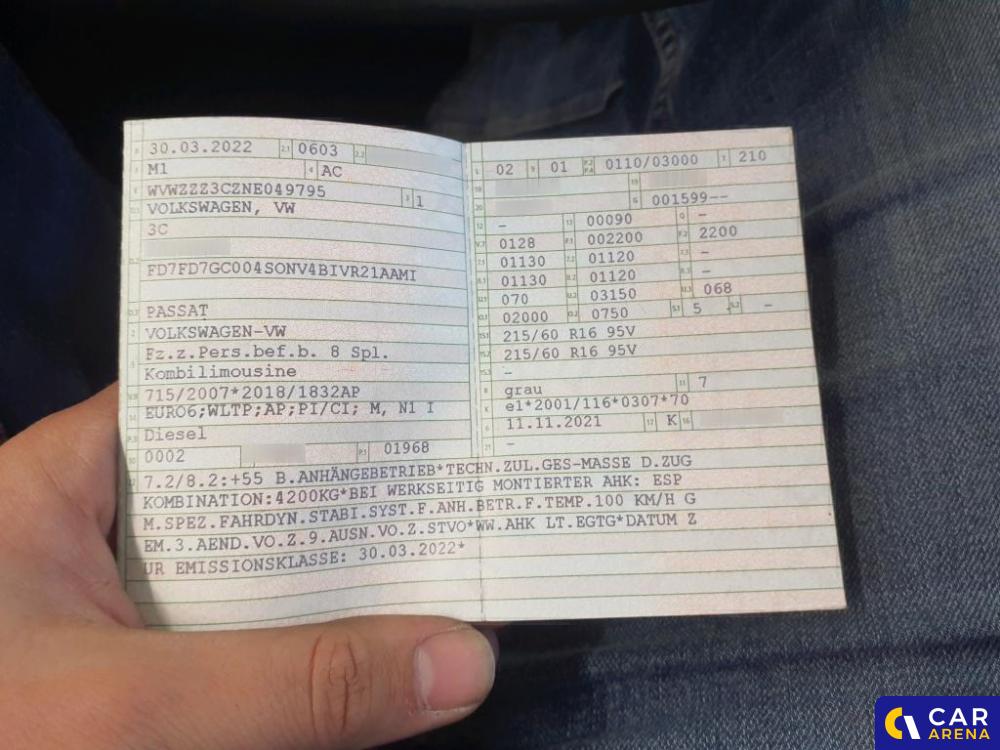 30.03.2022 2.1 0603 2.2
M1 4 AC
WVWZZZ3CZNE049795 3 1
VOLKSWAGEN, VW
3C
FD7FD7GC004SONV4BIVR21AAMI
PASSAT
VOLKSWAGEN-VW
Fz.z.Pers.bef.b. 8 Spl.
Kombilimousine
715/2007*2018/1832AP
EURO6;WLTP;AP;PI/CI; M, N1 I
Diesel
0002 P.1 01968
02 9 01 P.2 P.4 0110/03000 T 210
18 19
20 G 001599--
12 - 13 00090 Q -
V.7 0128 F.1 002200 F.2 2200
7.1 01130 7.2 01120 7.3 -
8.1 01130 8.2 01120 8.3 -
U.1 070 U.2 03150 U.3 068
O.1 02000 O.2 0750 S.1 5 S.2 -
15.1 215/60 R16 95V
15.2 215/60 R16 95V
15.3 -
R grau 11 7
K e1*2001/116*0307*70
6 11.11.2021 17 K 16
21 -
7.2/8.2:+55 B.ANHÄNGEBETRIEB*TECHN.ZUL.GES-MASSE D.ZUG
KOMBINATION:4200KG*BEI WERKSEITIG MONTIERTER AHK: ESP
M.SPEZ.FAHRDYN.STABI.SYST.F.ANH.BETR.F.TEMP.100 KM/H G
EM.3.AEND.VO.Z.9.AUSN.VO.Z.STVO*WW.AHK LT.EGTG*DATUM Z
UR EMISSIONSKLASSE: 30.03.2022*
CAR
ARENA